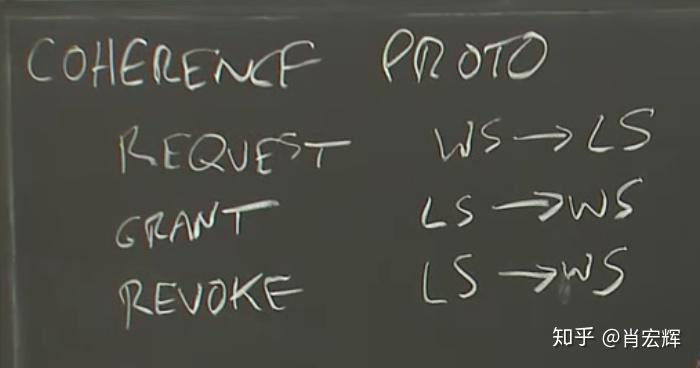 COHERENCE PROTO
REQUEST WS → LS
GRANT LS → WS
REVOKE LS → WS
知乎 @肖宏辉